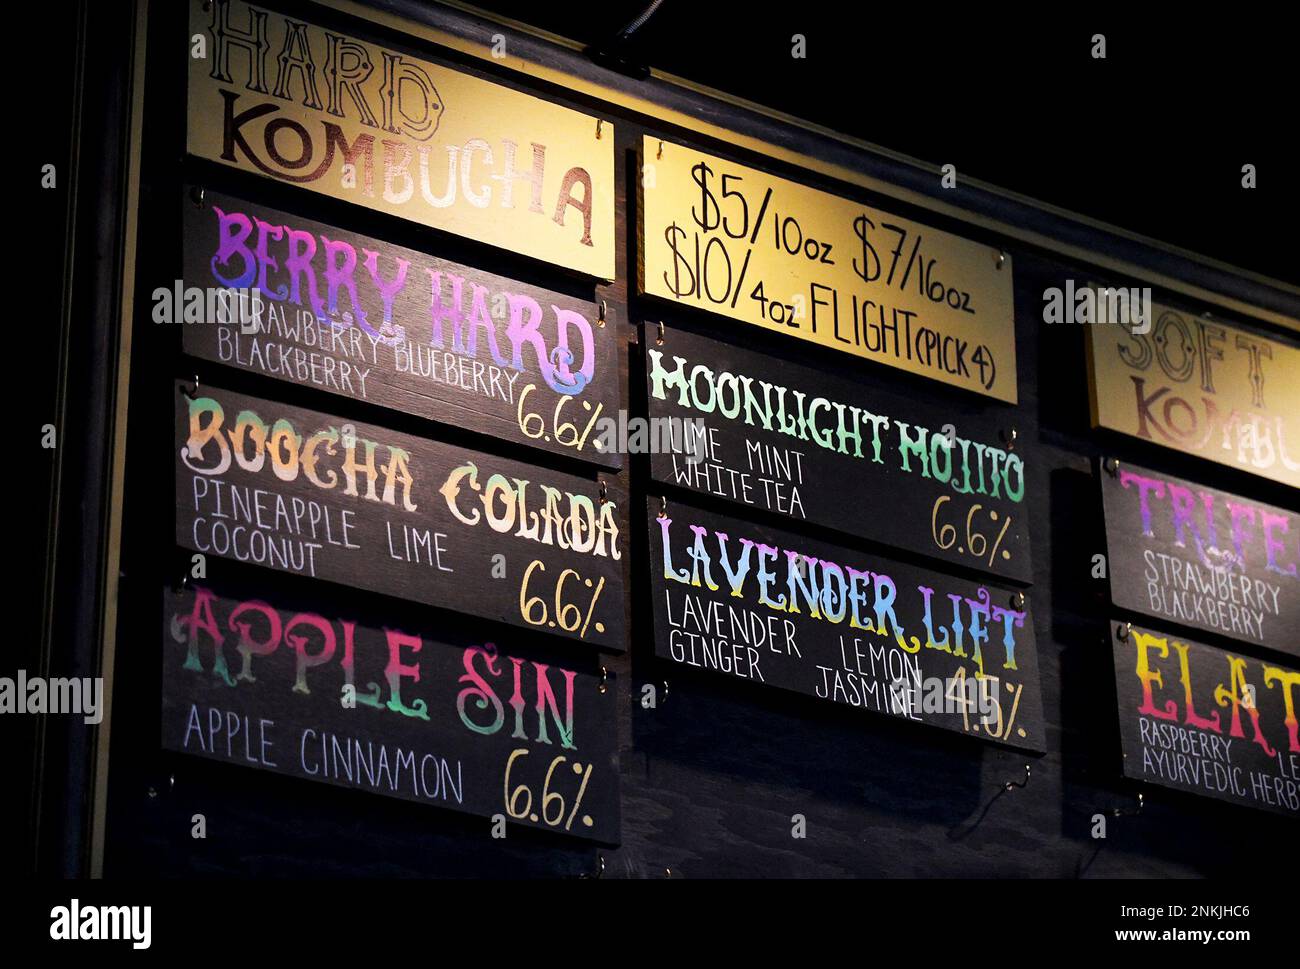 HARD
KOMBUCHA
BERRY HARD
STRAWBERRY BLUEBERRY
BLACKBERRY
6.6%
BOOCHA COLADA
PINEAPPLE LIME
COCONUT
6.6%
APPLE SIN
APPLE CINNAMON
6.6%
$5/10oz $7/16oz
$10/4oz FLIGHT (PICK 4)
MOONLIGHT MOJITO
LIME MINT
WHITE TEA
6.6%
LAVENDER LIFT
LAVENDER LEMON
GINGER JASMINE
4.5%
SOFT
STRAWBERRY
BLACKBERRY
RASPBERRY
AYURVEDIC
alamy
Image ID: 2NKJHC6
www.alamy.com